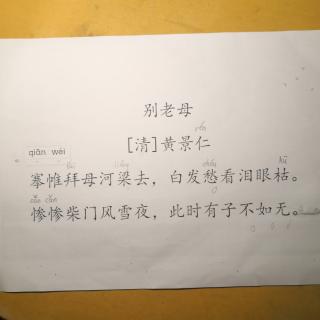 别老母
[清]黄景仁
qiān wéi
搴帷拜母河梁去，白发愁看泪眼枯。
惨惨柴门风雪夜，此时有子不如无。